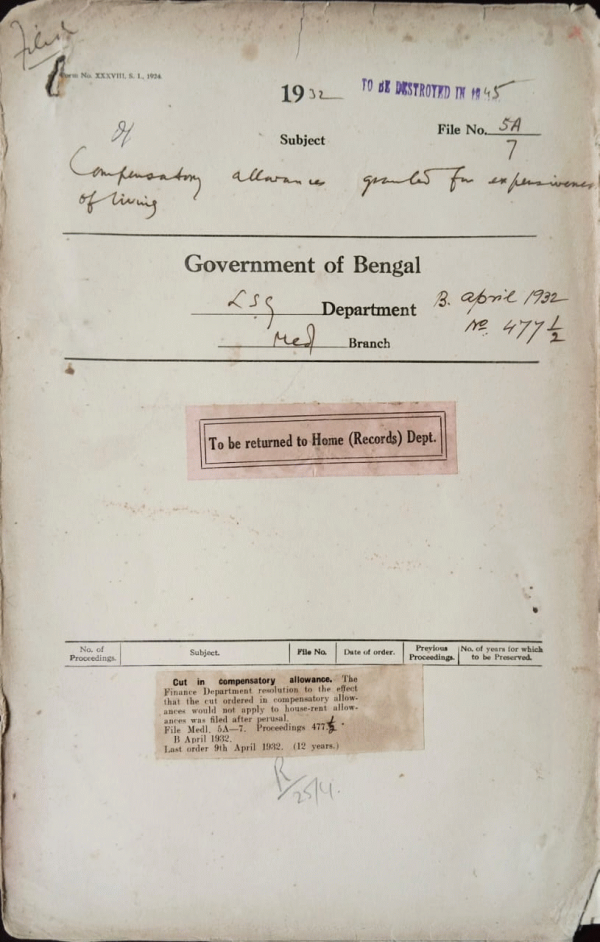 Filed
Form No. XXXVIII, S. I., 1924.
1932 TO BE DESTROYED IN 1945
File No. 5A
7
Subject
of
Compensatory allowances granted for expensiveness
of living
Government of Bengal
LSG Department
B. April 1932
No. 477 1/2
Med Branch
To be returned to Home (Records) Dept.
No. of Proceedings. Subject. File No. Date of order. Previous Proceedings. No. of years for which to be Preserved.
Cut in compensatory allowance. The
Finance Department resolution to the effect
that the cut ordered in compensatory allow-
ances would not apply to house-rent allow-
ances was filed after perusal.
File Medl. 5A—7. Proceedings 477 1/2.
B April 1932.
Last order 9th April 1932. (12 years.)
25/4.